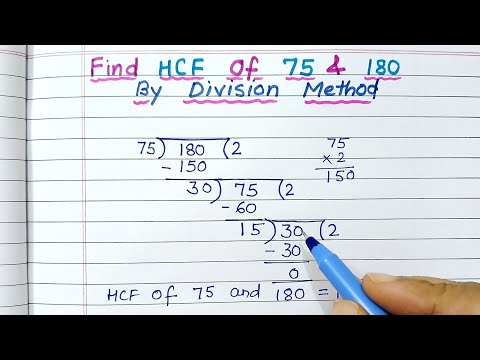 Find HCF Of 75 & 180
By Division Method
75) 180 (2
- 150
30) 75 (2
- 60
15) 30 (2
- 30
0
75
× 2
150
HCF Of 75 and 180 =